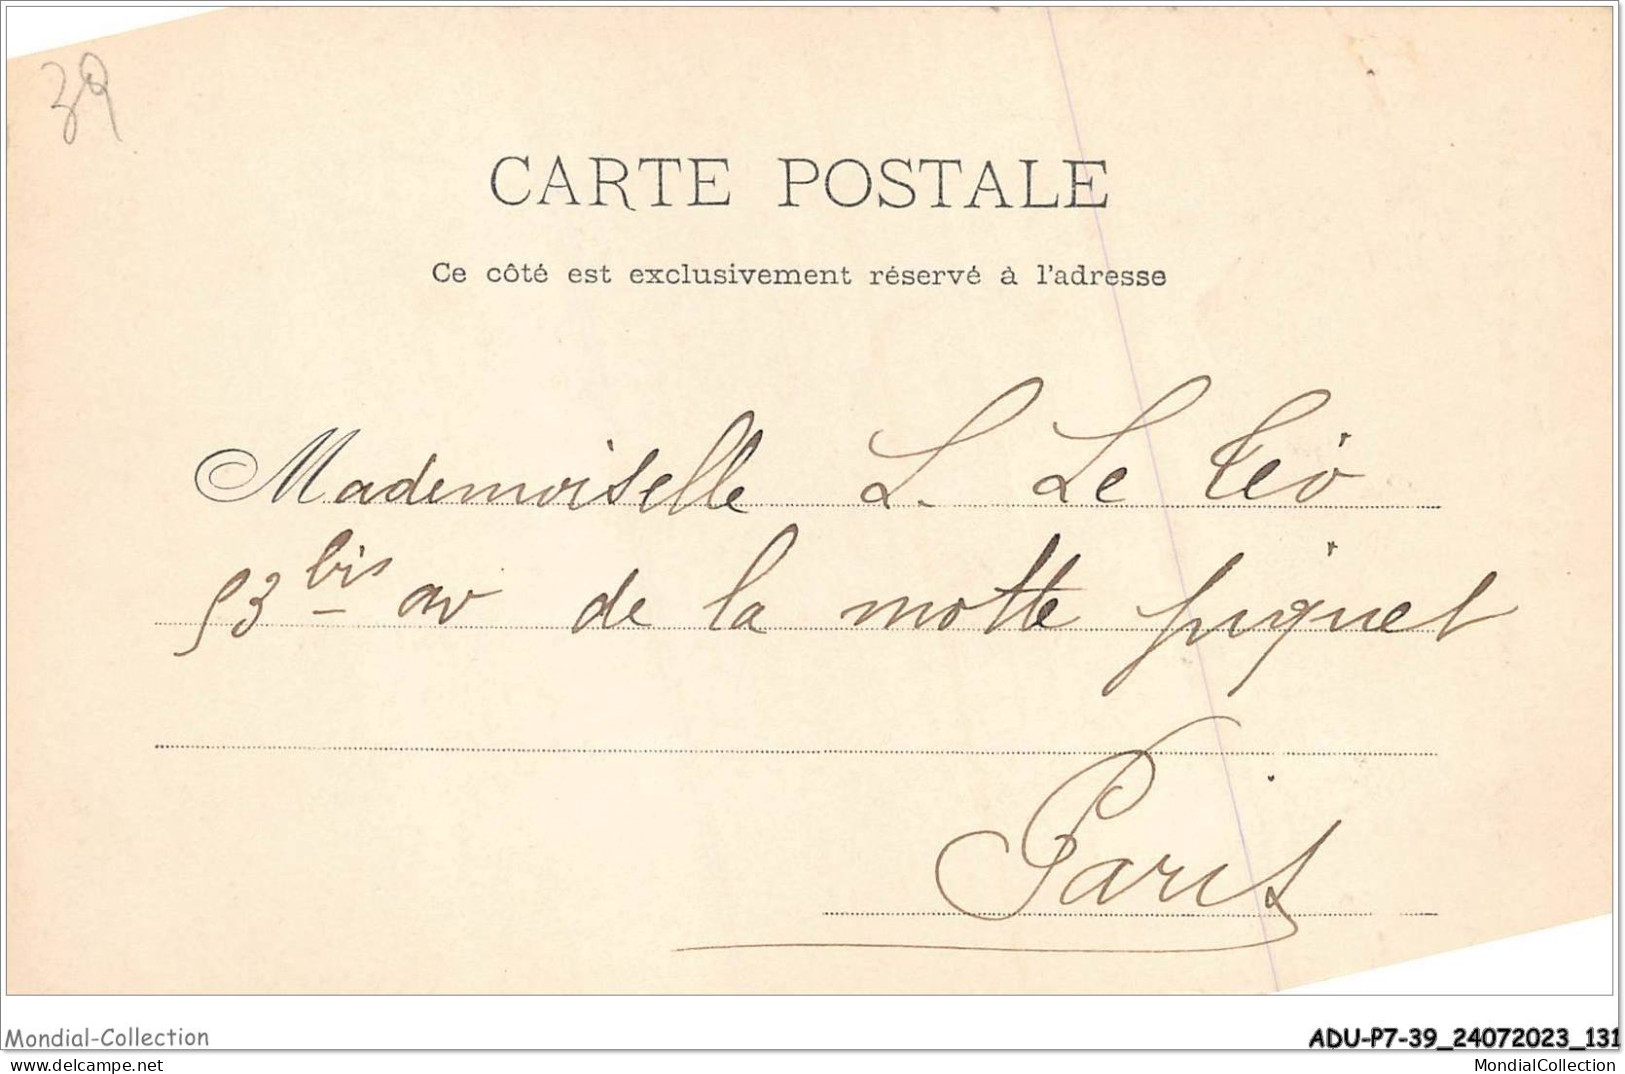 39
CARTE POSTALE
Ce côté est exclusivement réservé à l'adresse
Mademoiselle L. Le
53 bis av de la motte piquet
Paris
Mondial-Collection
ADU-P7-39_24072023_131
MondialCollection